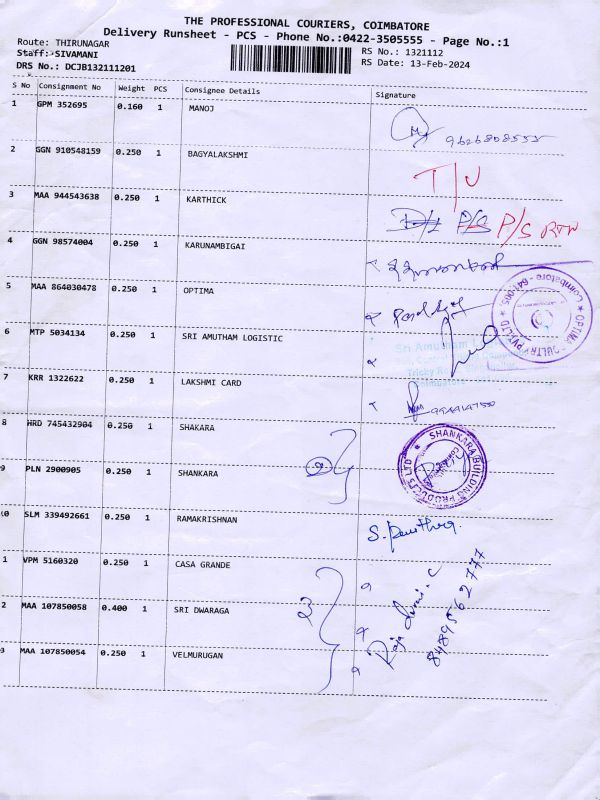 THE PROFESSIONAL COURIERS, COIMBATORE
Delivery Runsheet - PCS - Phone No.:0422-3505555 - Page No.:1
Route: THIRUNAGAR
Staff: SIVAMANI
DRS No.: DCJB132111201
RS No.: 1321112
RS Date: 13-Feb-2024
S No Consignment No Weight PCS Consignee Details Signature
1 GPM 352695 0.160 1 MANOJ
9626808555
2 GGN 910548159 0.250 1 BAGYALAKSHMI
T/U
3 MAA 944543638 0.250 1 KARTHICK
P/S P/S RTN
4 GGN 98574004 0.250 1 KARUNAMBIGAI
5 MAA 864030478 0.250 1 OPTIMA
6 MTP 5034134 0.250 1 SRI AMUTHAM LOGISTIC
Sri Amutham
Trichy Road
7 KRR 1322622 0.250 1 LAKSHMI CARD
8 HRD 745432904 0.250 1 SHAKARA
SHANKARA BUILDING PRODUCTS LTD
9 PLN 2900905 0.250 1 SHANKARA
10 SLM 339492661 0.250 1 RAMAKRISHNAN
1 VPM 5160320 0.250 1 CASA GRANDE
2 MAA 107850058 0.400 1 SRI DWARAGA
3 MAA 107850054 0.250 1 VELMURUGAN
8489562777